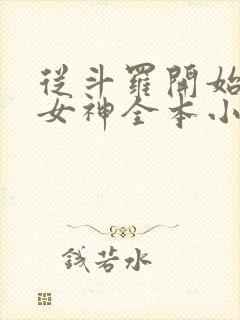 從斗羅開始
女神全本小
錢若水